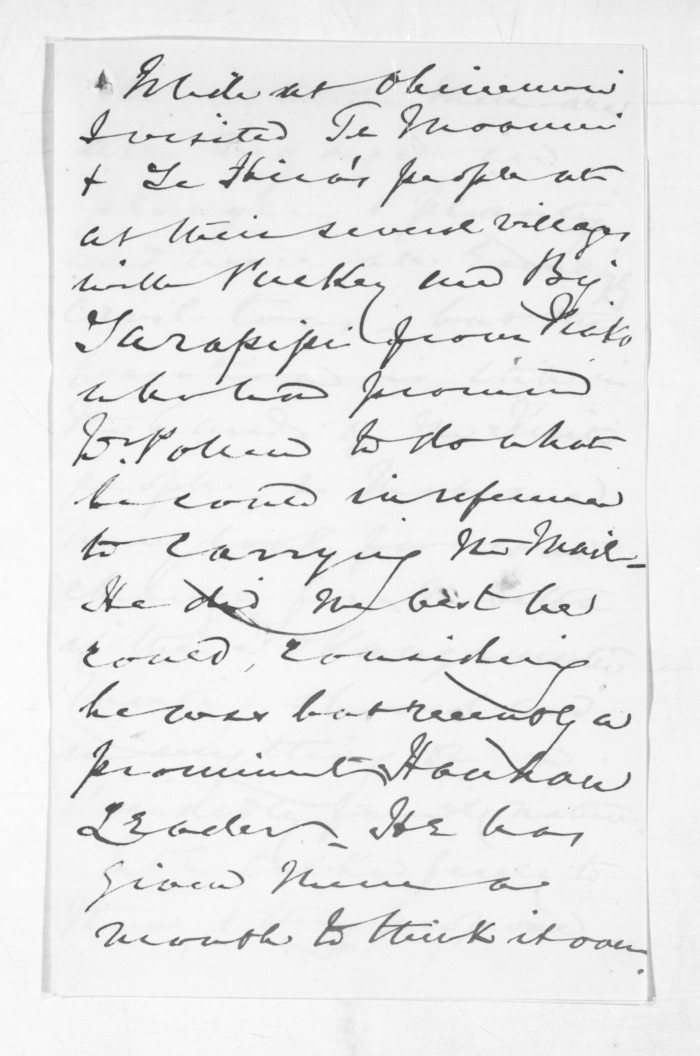 While at Ohinemuri
I visited Te Moananui
& Te Hira's people at
at their several villages
with Puckey and
Tarapipi from Piako
who had promised
Dr. Pollen to do what
he could in reference
to carrying the Mail -
He did the best he
could, considering
he was but recently a
prominent Hauhau
Leader - He has
given them a
month to think it over.